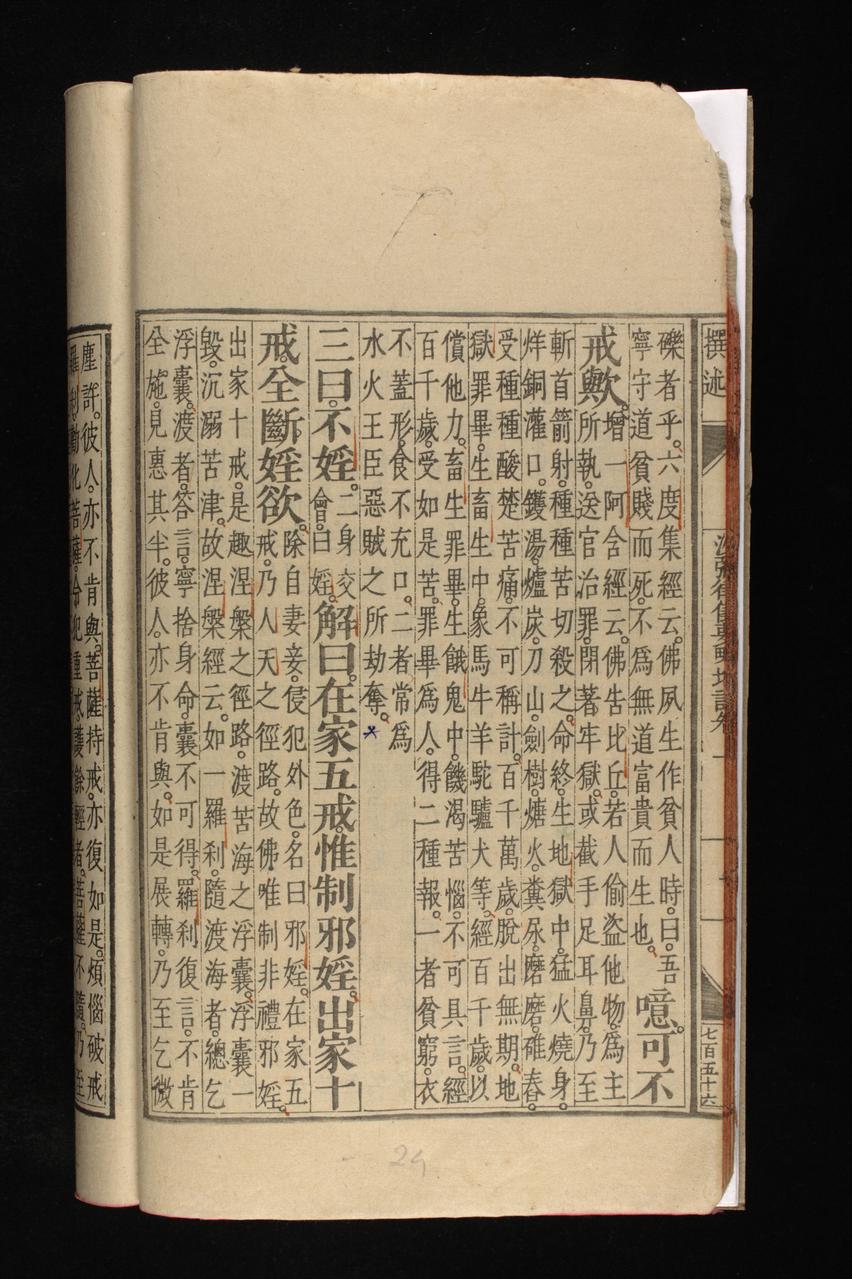 撰述
沙彌律儀要略增註卷一
七百五十六
礫者乎。六度集經云。佛夙生作貧人時。曰。吾
寧守道貧賤而死。不爲無道富貴而生也。
噫。可不
戒歟。
增一阿含經云。佛告比丘。若人偷盜他物。爲主
所執。送官治罪。閉著牢獄。或截手足耳鼻。乃至
斬首箭射。種種苦切殺之。命終。生地獄中。猛火燒身。
烊銅灌口。鑊湯。爐炭。刀山。劍樹。煻火。糞尿。磨磨。碓舂。
受種種酸楚苦痛。不可稱計。百千萬歲。脫出無期。地
獄罪畢。生畜生中。象馬牛羊駝驢犬等。經百千歲。以
償他力。畜生罪畢。生餓鬼中。饑渴苦惱。不可具言。經
百千歲。受如是苦。罪畢爲人。得二種報。一者貧窮。衣
不蓋形。食不充口。二者常爲
水火王臣惡賊之所劫奪。
三曰。不婬。
二身交
會。曰婬。
解曰。在家五戒。惟制邪婬。出家十
戒。全斷婬欲。
除自妻妾。侵犯外色。名曰邪婬。在家五
戒。乃人天之徑路。故佛唯制非禮邪婬。
出家十戒。是趣涅槃之徑路。渡苦海之浮囊。浮囊一
毀。沉溺苦津。故涅槃經云。如一羅刹。隨渡海者。總乞
浮囊。渡者。答言。寧捨身命。囊不可得。羅刹復言。不肯
全施。見惠其半。彼人。亦不肯與。如是展轉。乃至乞微
塵許。彼人。亦不肯與。菩薩持戒。亦復如是。煩惱破戒
羅刹。勸化菩薩。令犯重戒。護餘輕者。菩薩不隨。乃至
24